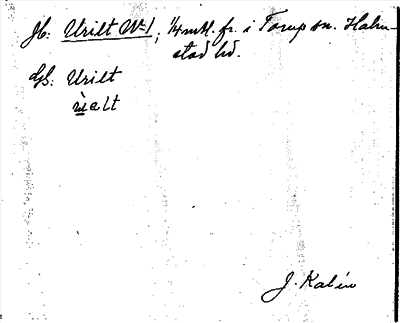 Jb: Urilt №1, 1/4 mkl. fr. i Torup sn. Halm-
stad hd.
Gs: Urilt
ùalt
J. Kalén